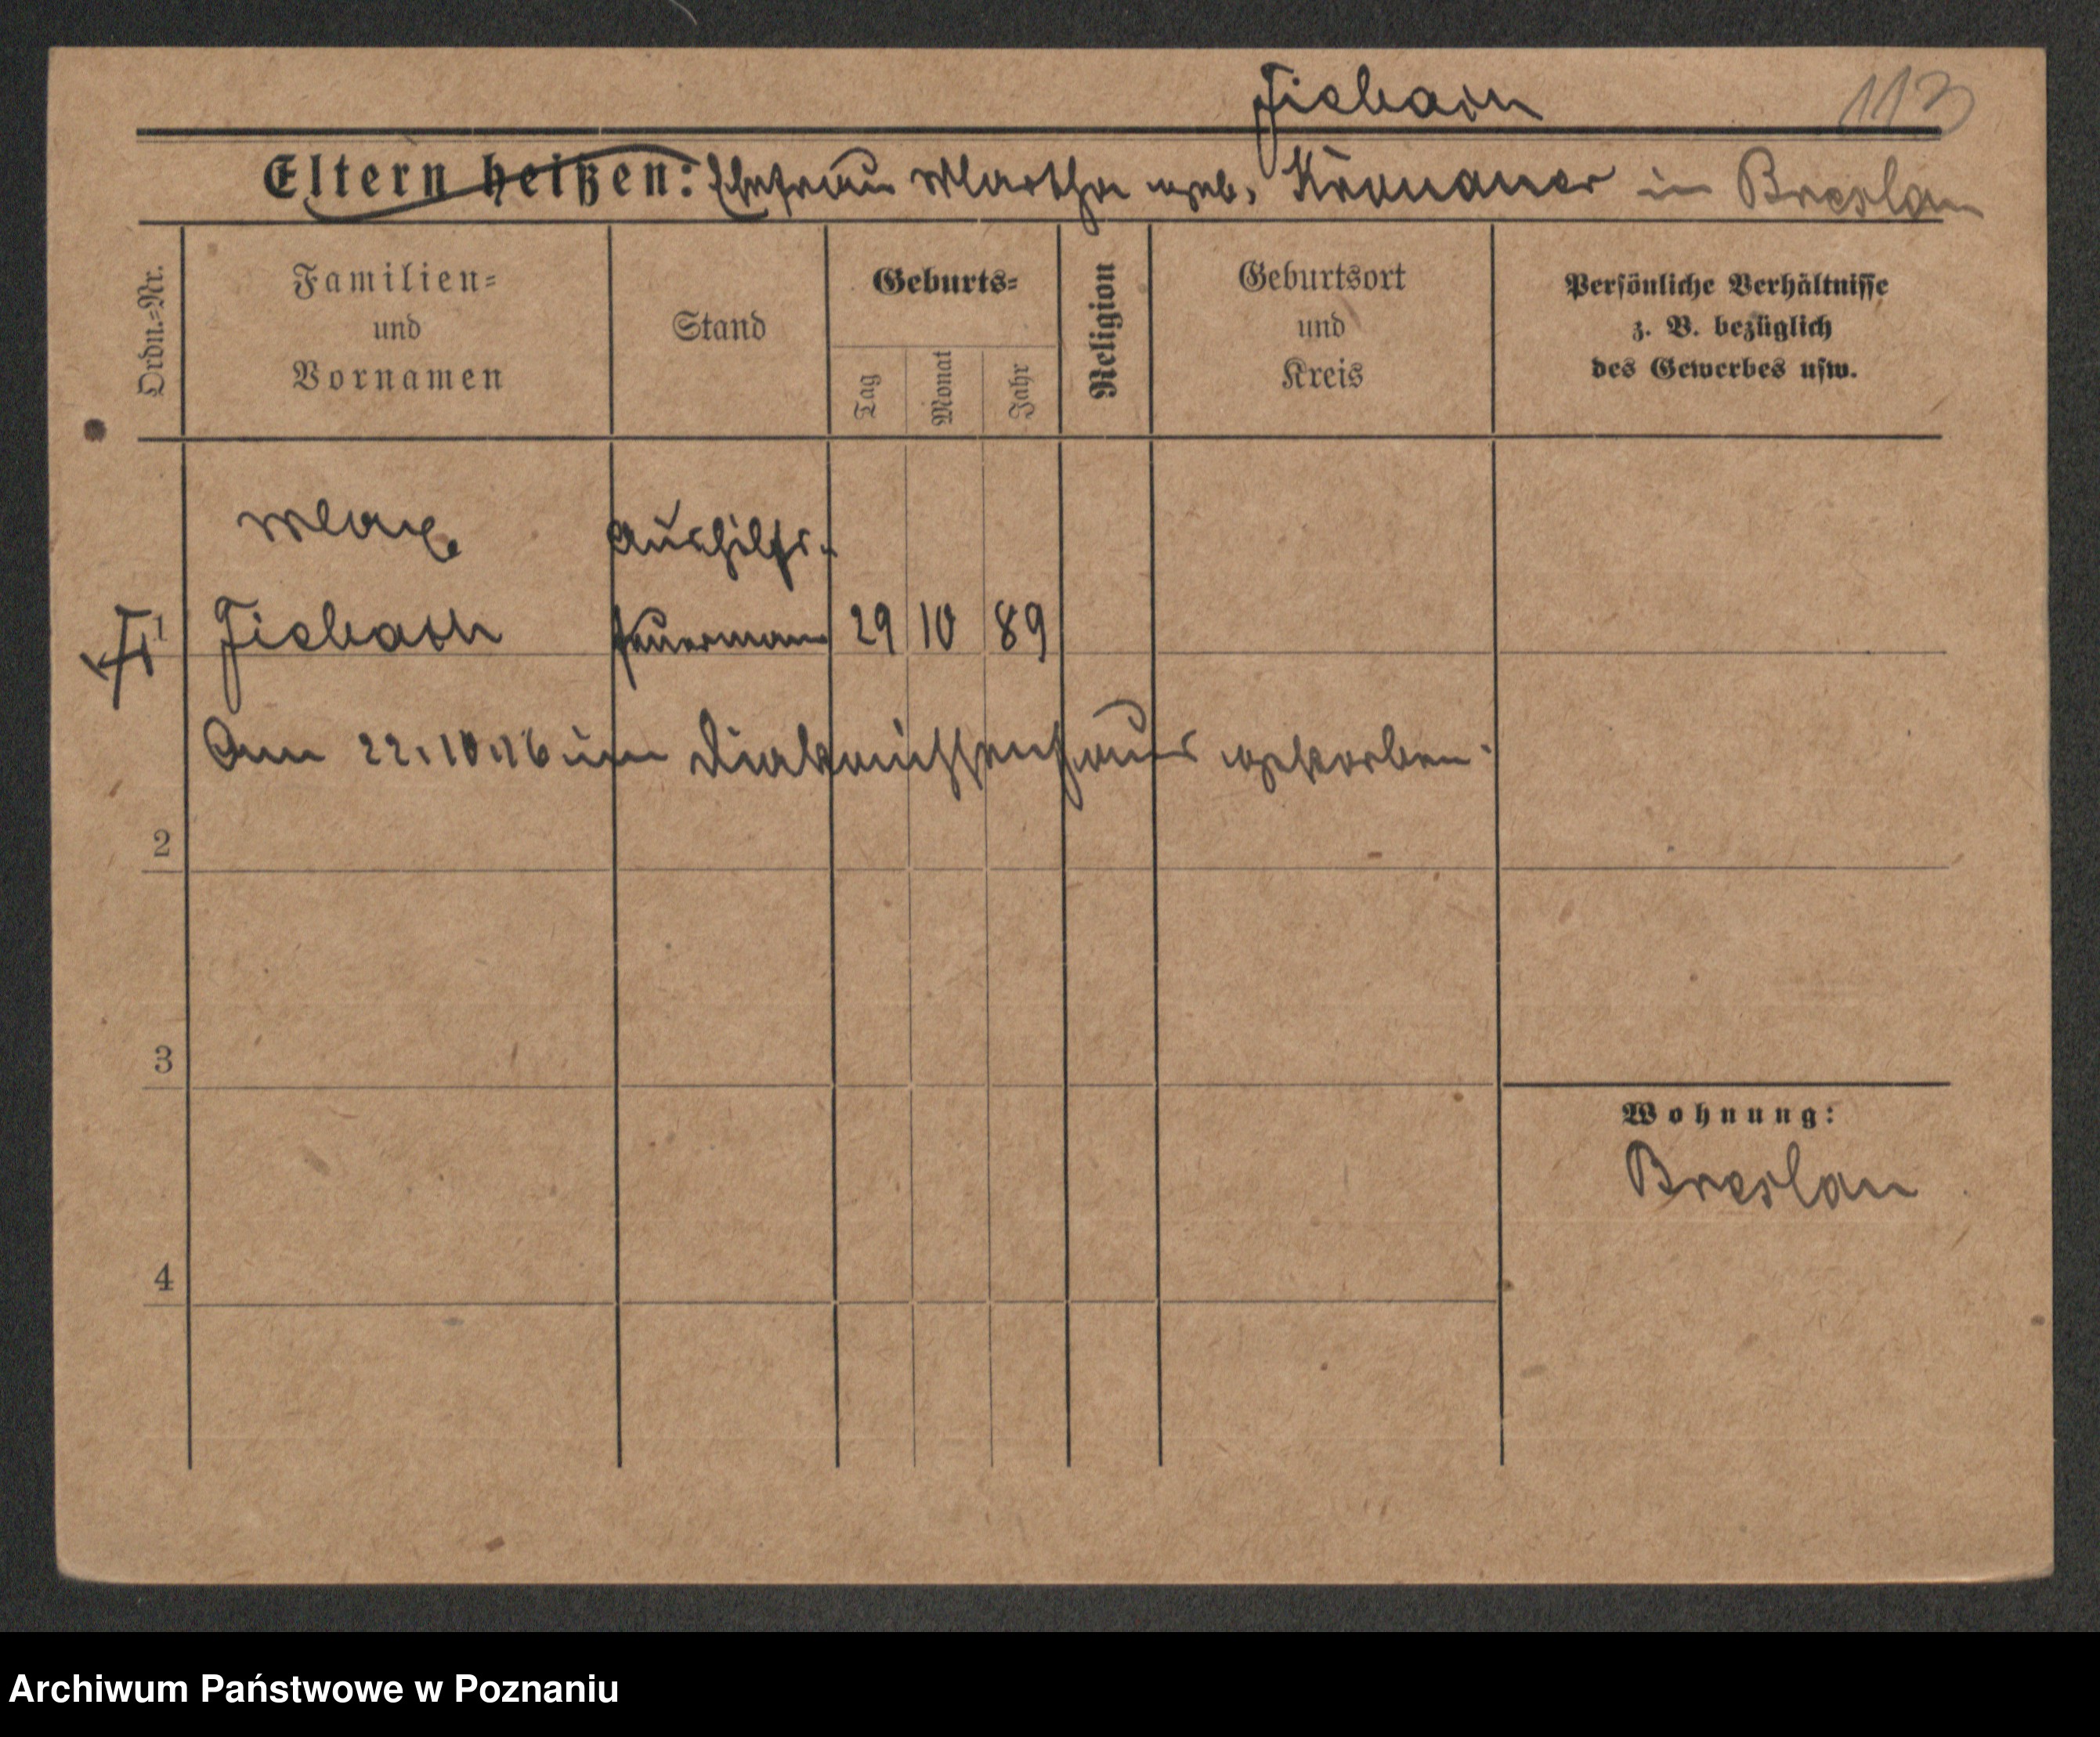 Fiebach
113
Eltern heißen: Ehefrau Martha geb. Kronauer in Breslau
Ordn.=Nr.
Familien=
und
Vornamen
Stand
Geburts=
Tag
Monat
Jahr
Religion
Geburtsort
und
Kreis
Persönliche Verhältnisse
z. B. bezüglich
des Gewerbes usw.
Max
Aushilfs-
1 Feuermann 29 10 89
Am 22.10.16 im Diakonissenhaus gestorben.
2
3
Wohnung:
Breslau
4
Archiwum Państwowe w Poznaniu